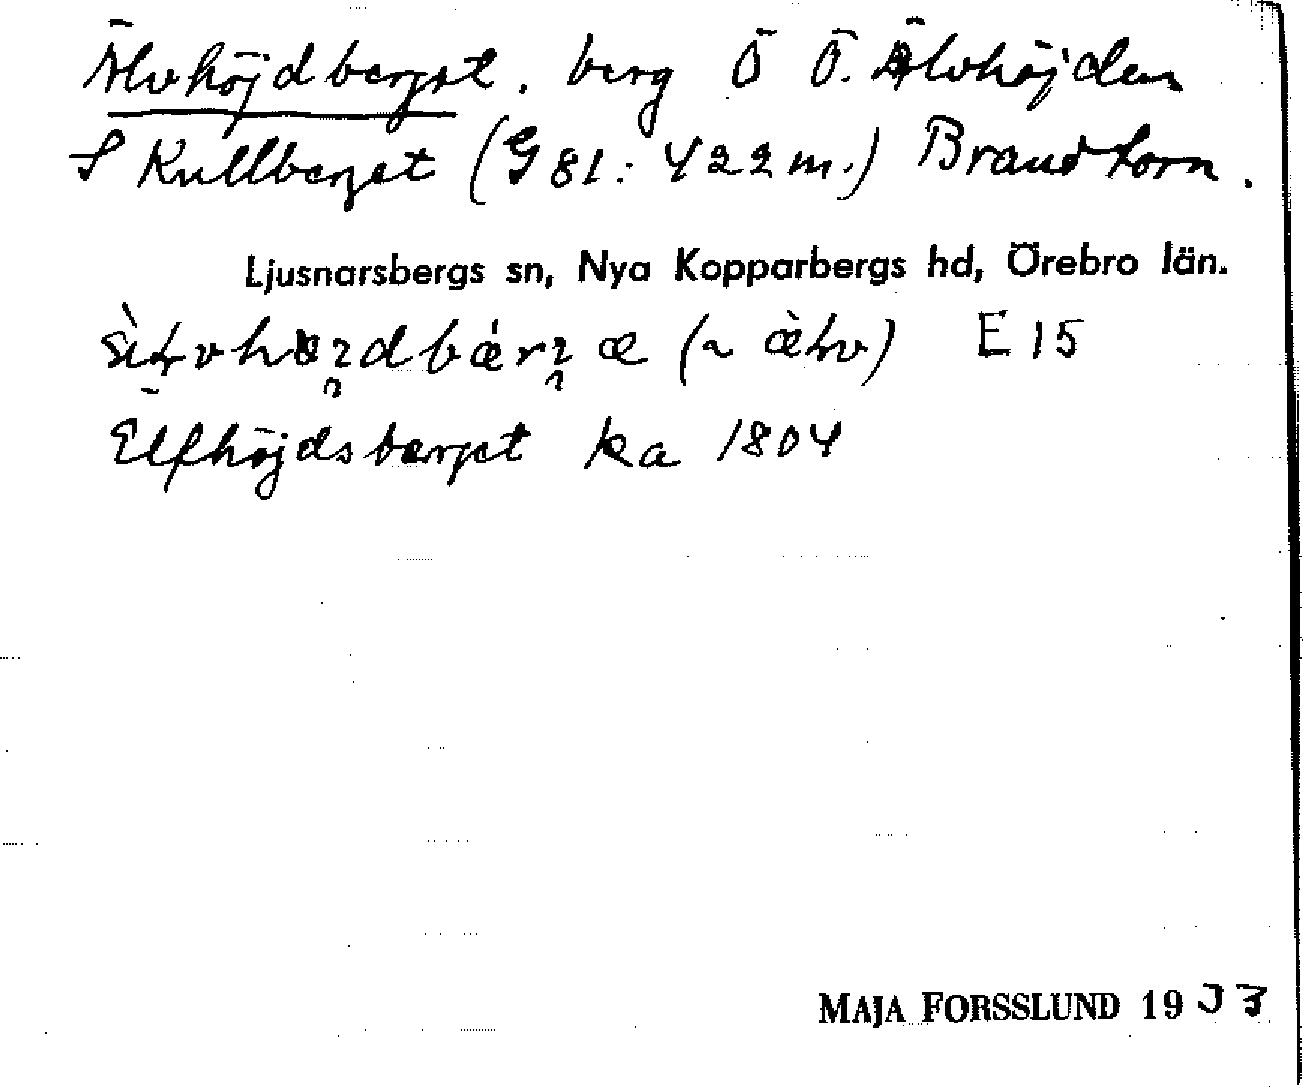 Älvhöjdberget. berg Ö Ö. Älvhöjden
S Kullberget (G 81: 422 m.) Brandtorn.
Ljusnarsbergs sn, Nya Kopparbergs hd, Örebro län.
E 15
Elfhöjdsberget ka 1804
MAJA FORSSLUND 19